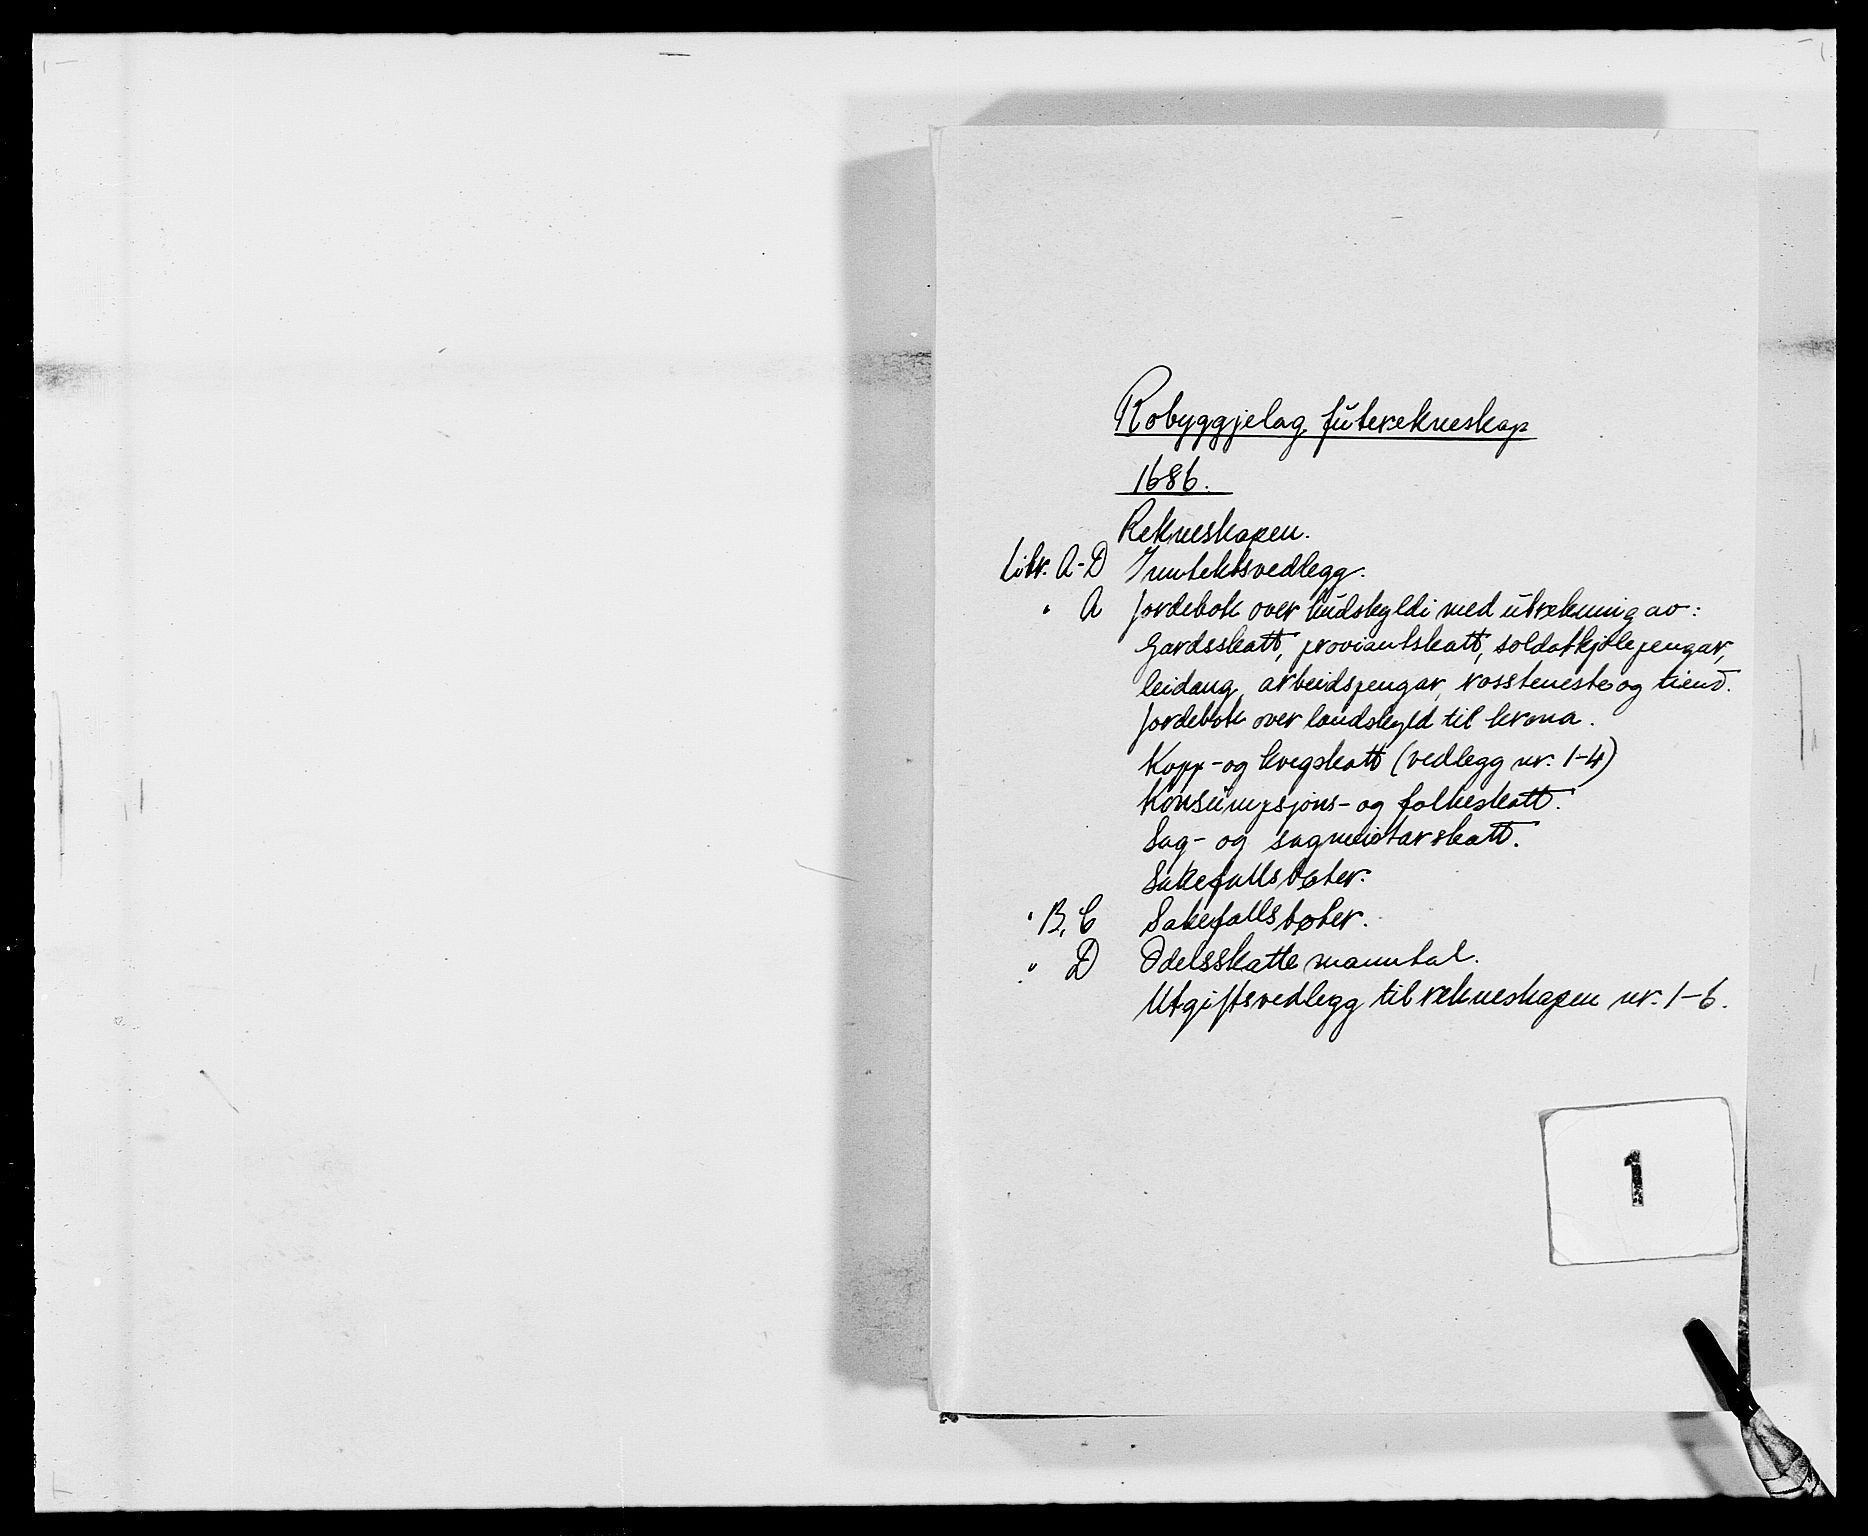 Robyggjelag futerekneskap
1686.
Rekneskapen.
Litr. A-D Inntektsvedlegg.
" A Jordebok over landskyldi med utrekning av:
Gardsskatt, proviantskatt, soldatkjolepengar,
leidang, arbeidspengar, rossteneste og tiend.
Jordebok over landskyld til krona.
Kopp- og kvegskatt (vedlegg nr. 1-4)
Konsumpsjons- og folkeskatt.
Sag- og sagmeistarskatt.
Sakefallsbøter.
" B, C Sakefallsbøter.
" D Odelsskattemanntal.
Utgiftsvedlegg til rekneskapen nr. 1-6.
1